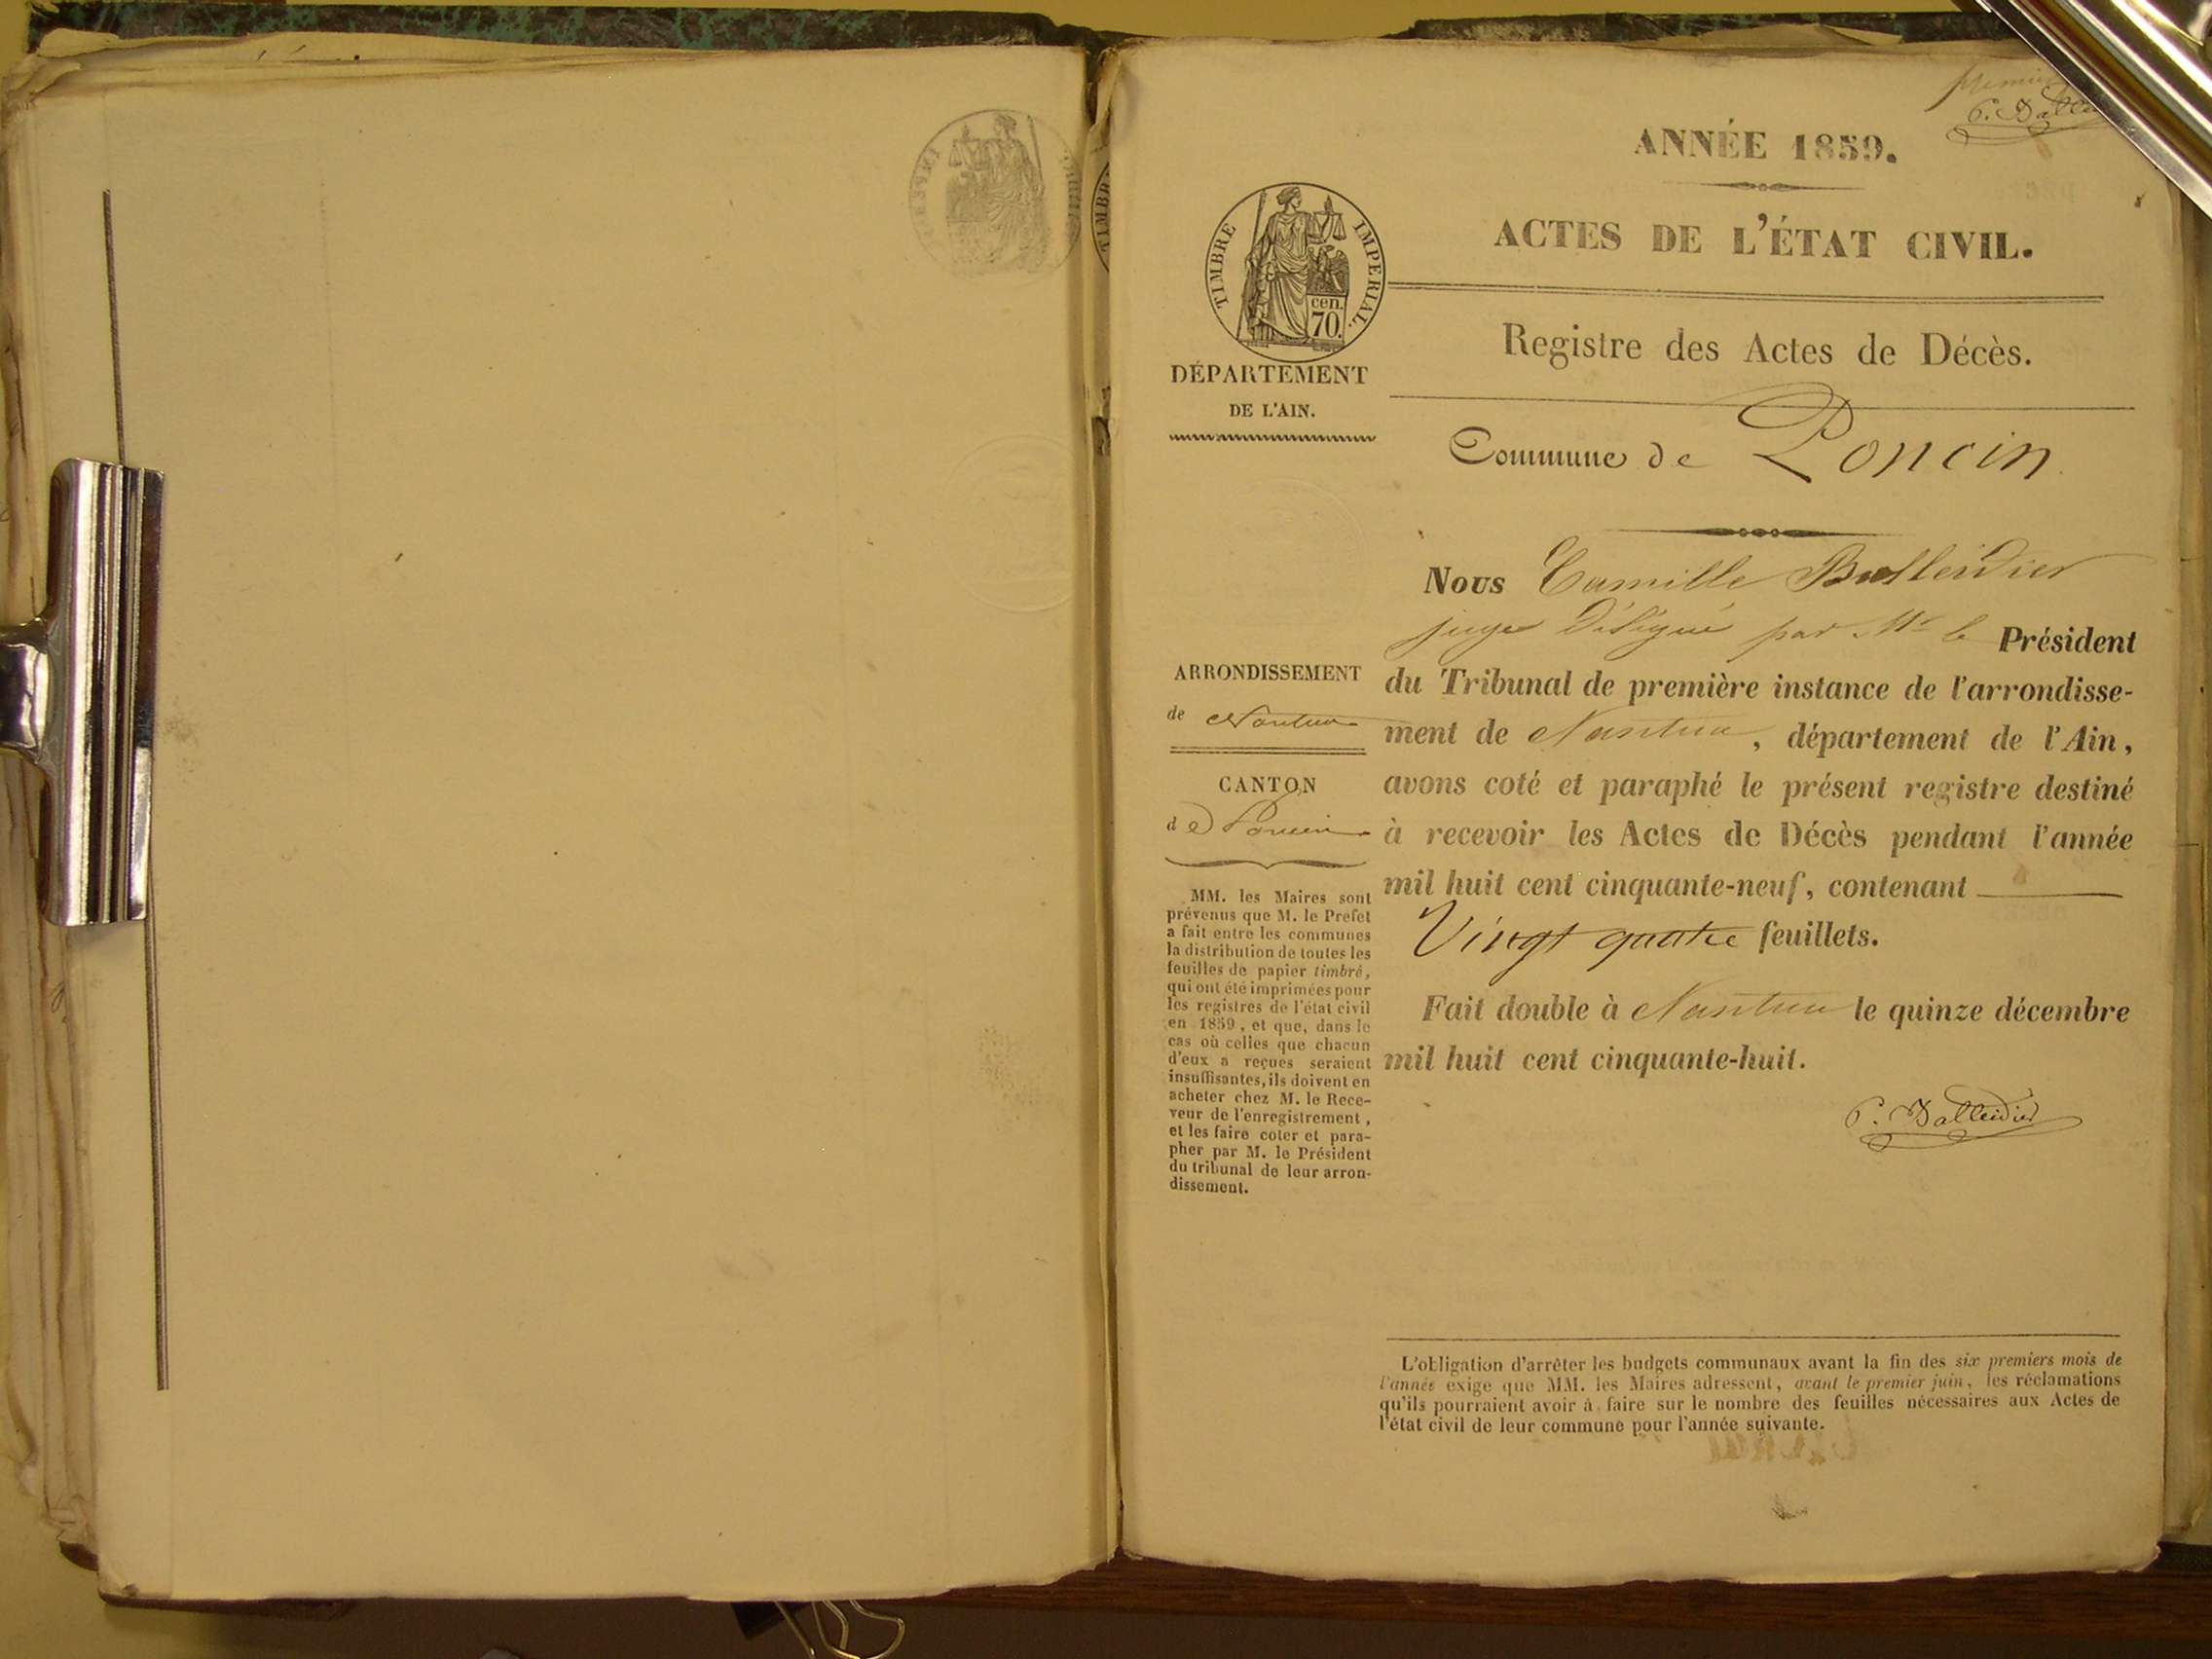 premier
C. Ball
ANNÉE 1859.
ACTES DE L'ÉTAT CIVIL.
TIMBRE IMPERIAL.
cen.
70.
Registre des Actes de Décès.
DÉPARTEMENT
DE L'AIN.
Commune de Poncin
Nous Camille Balleidier
juge délégué par Mr le Président
du Tribunal de première instance de l'arrondisse-
ment de Nantua, département de l'Ain,
avons coté et paraphé le présent registre destiné
à recevoir les Actes de Décès pendant l'année
mil huit cent cinquante-neuf, contenant
Vingt quatre feuillets.
Fait double à Nantua le quinze décembre
mil huit cent cinquante-huit.
C. Balleidier
ARRONDISSEMENT
de Nantua
CANTON
de Poncin
MM. les Maires sont
prévenus que M. le Prefet
a fait entre les communes
la distribution de toutes les
feuilles de papier timbré,
qui ont été imprimées pour
les registres de l'état civil
en 1859, et que, dans le
cas où celles que chacun
d'eux a reçues seraient
insuffisantes, ils doivent en
acheter chez M. le Rece-
veur de l'enregistrement,
et les faire coter et para-
pher par M. le Président
du tribunal de leur arron-
dissement.
L'obligation d'arrêter les budgets communaux avant la fin des six premiers mois de
l'année exige que MM. les Maires adressent, avant le premier juin, les réclamations
qu'ils pourraient avoir à faire sur le nombre des feuilles nécessaires aux Actes de
l'état civil de leur commune pour l'année suivante.